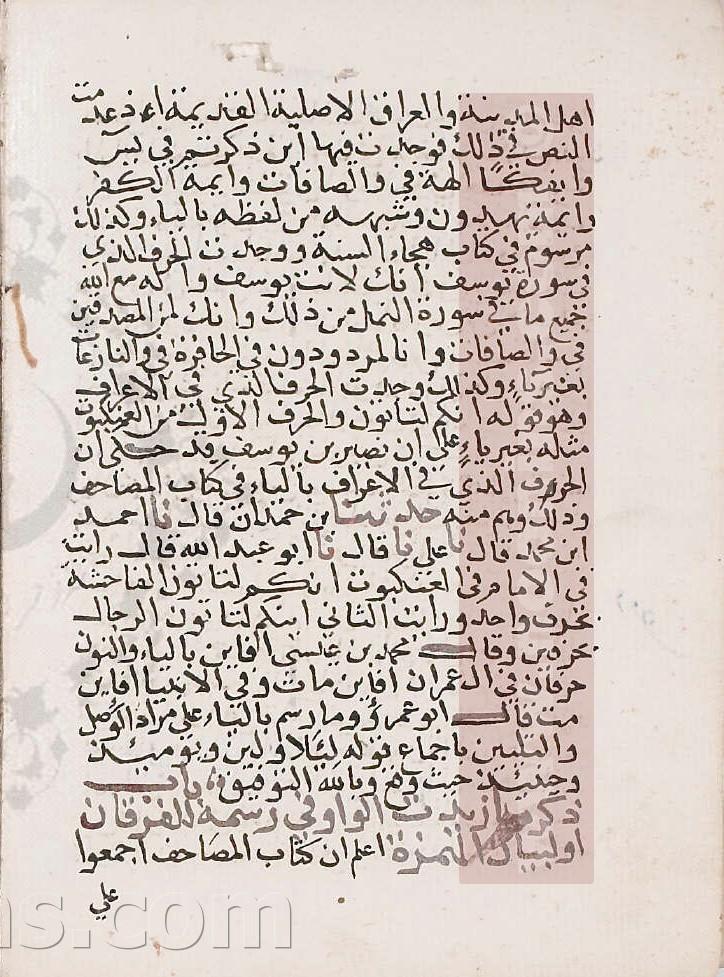 اهل المدينة والعراق الاصلية القديمة اذ عدمت
النص في ذلك فوجدت فيها اين ذكرتم في يس
وايفكا الهة في والصافات وايمة الكفر
وايمة يهدون وشبهه من لفظه بالياء وكذلك
مرسوم في كتاب هجاء السنة ووجدت الحرف الذي
في سورة يوسف انك لانت يوسف واله مع الله
جميع ما في سورة النمل من ذلك وانك لمن المصدقين
في والصافات وانا لمردودون في الحافرة في والنازعات
بغير ياء وكذلك وجدت الحرف الذي في الاعراف
وهو قوله انكم لتاتون والحرف الاول من العنكبوت
مثله بغير ياء على ان نصير بن يوسف قد حكى ان
الحرف الذي في الاعراف بالياء في كتاب المصاحف
وذلك وهم منه حدثنا بن حمدان قال نا احمد
ابن محمد قال نا علي نا قال نا ابو عبد الله قال رايت
في الامام في العنكبوت انكم لتاتون الفاحشة
بحرف واحد ورايت الثاني اينكم لتاتون الرجال
بحرفين وقال محمد بن عيسى افاين بالياء والنون
حرفان في ال عمران افاين مات وفي الانبيا افاين
مت قال ابو عمرو وما رسم بالياء على مراد الوصل
والتليين باجماع قوله ليلا ولين ويوميذ
وحينيذ حيث وقع وبالله التوفيق باب
ذكر ما زيدت الواو في رسمه للفرقان
او لبيان الهمزة اعلم ان كتاب المصاحف اجمعوا
على
ns.com